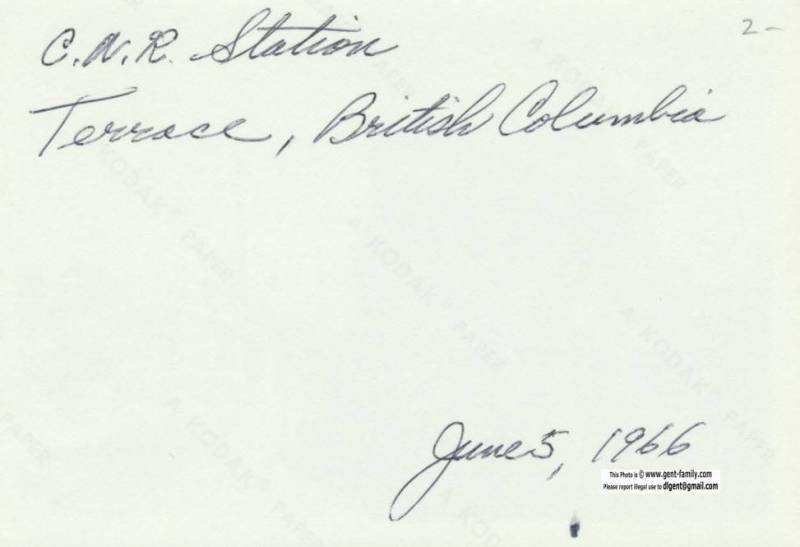 2-
C.N.R. Station
Terrace, British Columbia
A KODAK PAPER
A KODAK® PAPER
A KODAK® PAPER
A KODAK PAPER
A KODAK PAPER
June 5, 1966
This Photo is © www.gent-family.com
Please report illegal use to dlgent@gmail.com